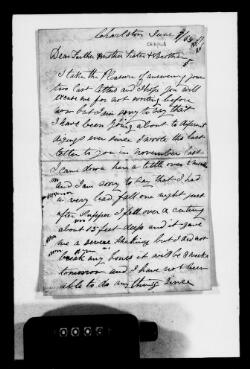 Charleston June
Dear Father Mother Sister & Brother
I take the Pleasure of answering your
two last letters and I hope you will
excuse me for not writing before
now but I am sorry to say that
I have been going about to different
digings ever since I wrote the last
letter to you in november last
I came down here a little over
and I am sorry to say that I had
a very bad fall one night just
after supper I fell over a
about 15 feet deep and it gave
me a severe shaking but I did not
break any bones it will be 3 weeks
tomorrow and I have not been
able to do any thing since